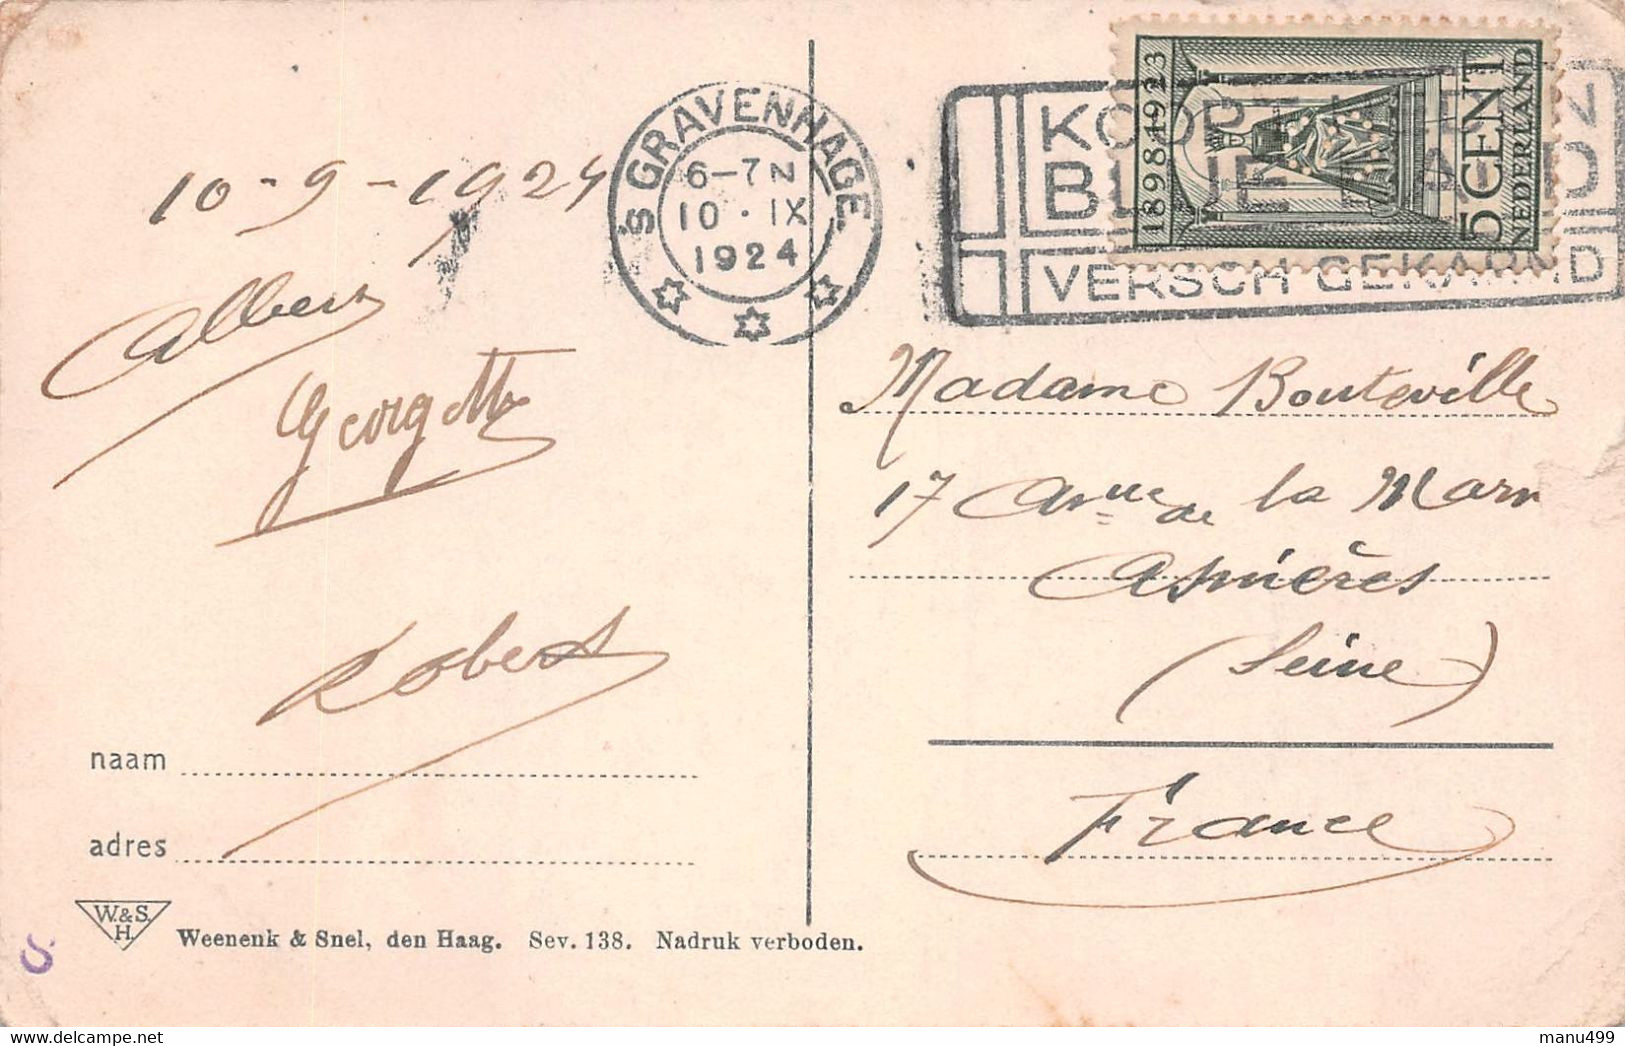 10-9-1924
Albert
Georgette
Robert
naam
adres
W.&S.
H.
Weenenk & Snel, den Haag. Sev. 138. Nadruk verboden.
'S GRAVENHAGE
6-7 N
10 · IX
1924
BLUE BAND
VERSCH GEKARND
1898-1923
5 CENT
NEDERLAND
Madame Bouteville
17 Avnue de la Marn
Asnières
(Seine)
France
manu499